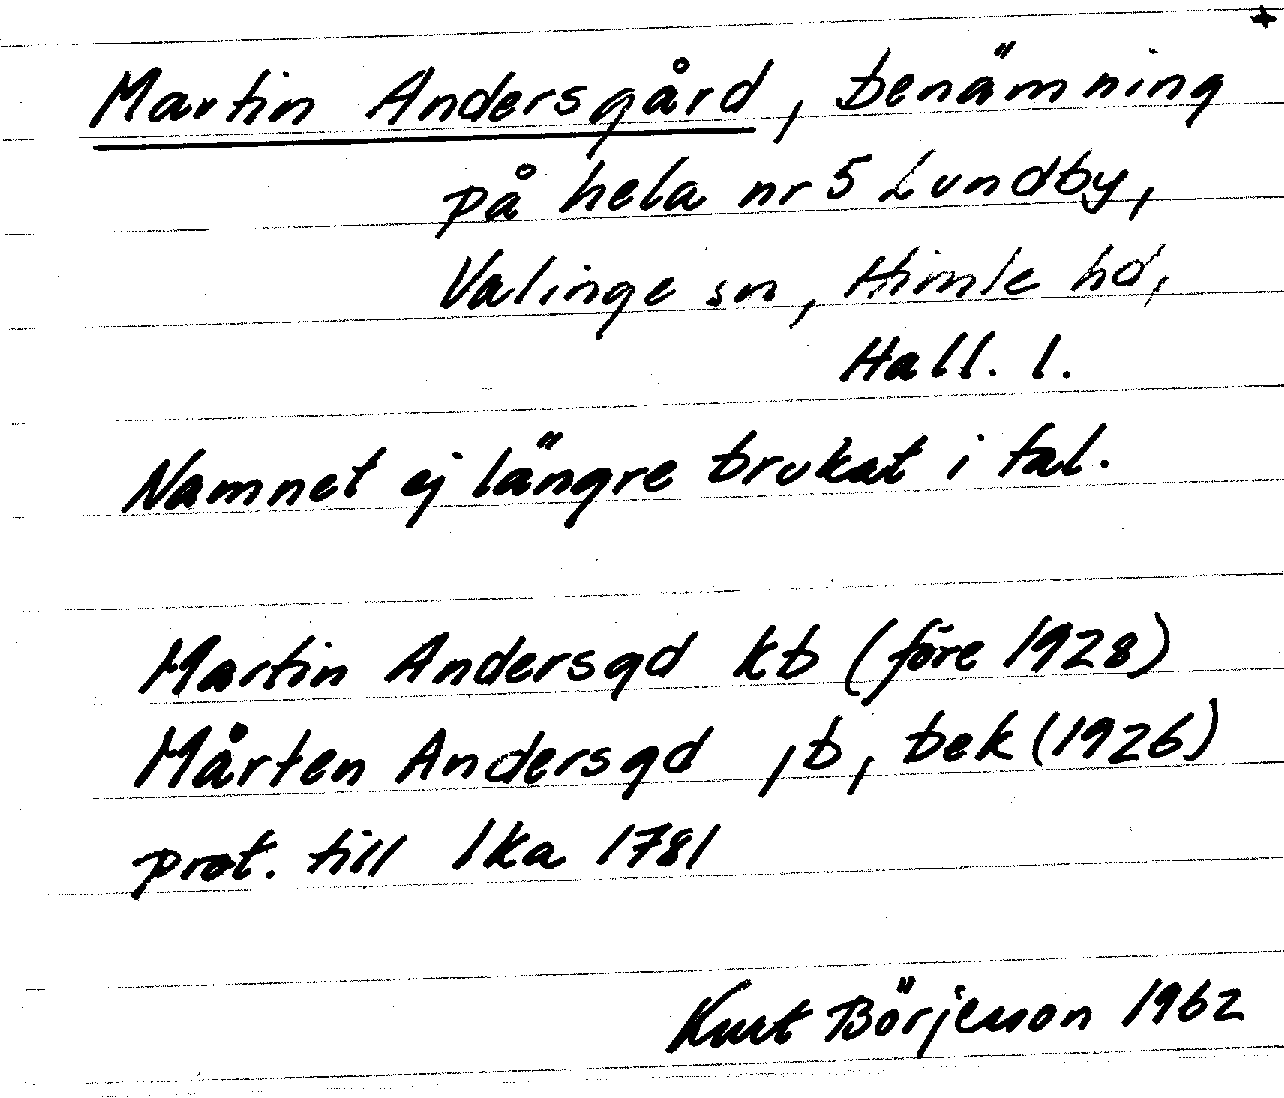 +
Martin Andersgård, benämning
på hela nr 5 Lundby,
Valinge sn, Himle hd,
Hall. l.
Namnet ej längre brukat i tal.
Martin Andersgd kb (före 1928)
Mårten Andersgd ,b, bek (1926)
prot. till lka 1781
Kurt Börjesson 1962